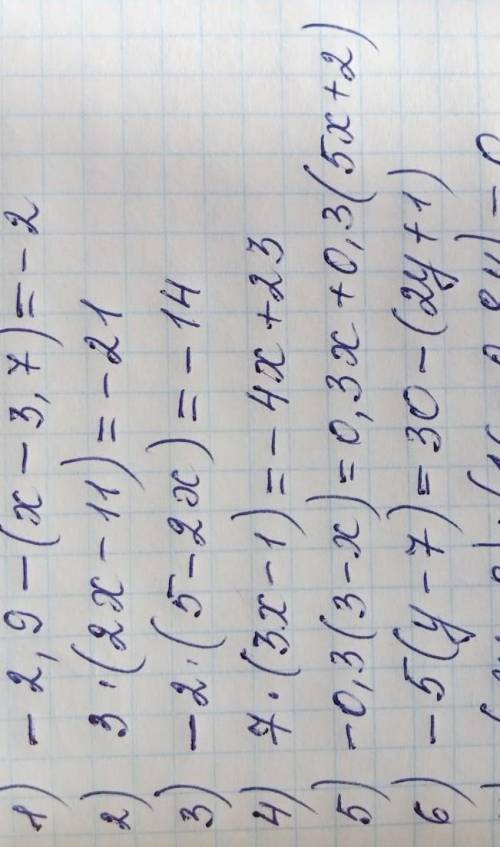 1) -2,9-(x-3,7)=-2
2) 3·(2x-11)=-21
3) -2·(5-2x)=-14
4) 7·(3x-1)=-4x+23
5) -0,3(3-x)=0,3x+0,3(5x+2)
6) -5(y-7)=30-(2y+1)